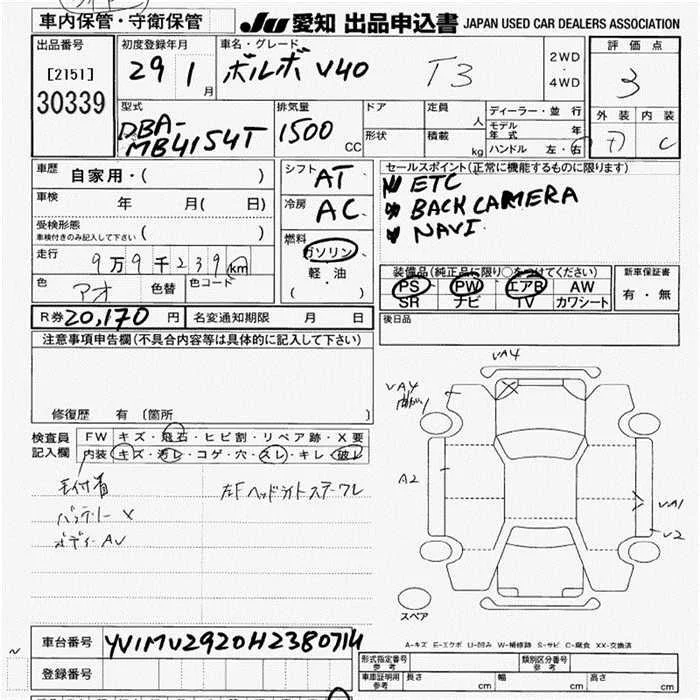 車内保管・守衛保管
JU 愛知 出品申込書 JAPAN USED CAR DEALERS ASSOCIATION
出品番号
[2151]
30339
初度登録年月
29 1 月
車名・グレード
ボルボ V40 T3
2WD
・
4WD
評価点
3
外装 内装
C
型式
DBA-
MB4154T
排気量
1500 CC
ドア
形状
定員 人
積載 kg
ディーラー・並行
モデル年式 年
ハンドル 左・右
車歴
自家用・( )
車検 年 月( 日)
受検形態
車検付きのみ記入して下さい ( )
走行
9万9千239km
色 アオ 色替 色コード
シフト AT
冷房 AC
燃料
ガソリン
軽・油
( )
セールスポイント(正常に機能するものに限ります)
ETC
BACK CAMERA
NAVI
装備品(純正品に限り○をつけてください)
PS PW エアB AW
SR ナビ TV カワシート
新車保証書
有・無
R券 20,170 円 名変通知期限 月 日
後日品
注意事項申告欄(不具合内容等は具体的に記入して下さい)
修復歴 有 〔箇所 〕
検査員
記入欄
FW キズ・飛石・ヒビ割・リペア跡・X要
内装 キズ・汚レ・コゲ・穴・スレ・キレ・破レ
毛付着
バッテリー X
ボディーAU
左Fヘッドライトステーワレ
VA4
VA4
曲がり
A2
VA1
V2
スペア
A-キズ E-エクボ U-凹み W-補修跡 S-サビ C-腐食 XX-交換済
車台番号 YV1MV2920H2380714
登録番号
形式指定番号
参考
類別区分番号
参考
車庫証明用
参考
長さ cm 幅 cm 高さ cm